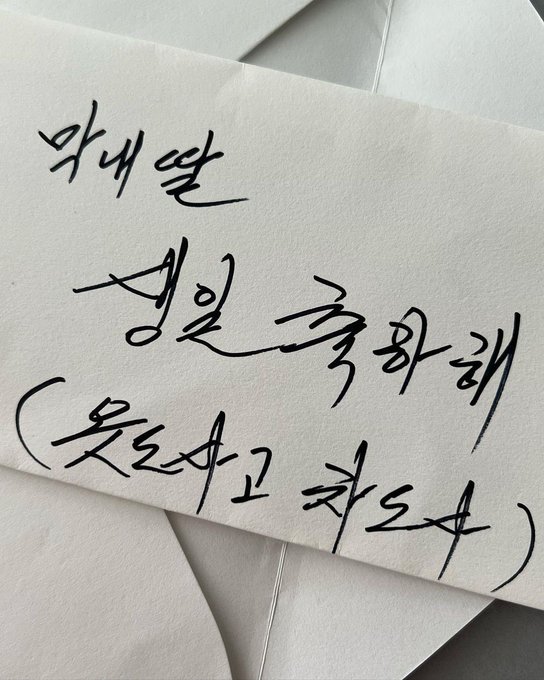 막내딸
생일 축하해
(옷도사고 차도사)